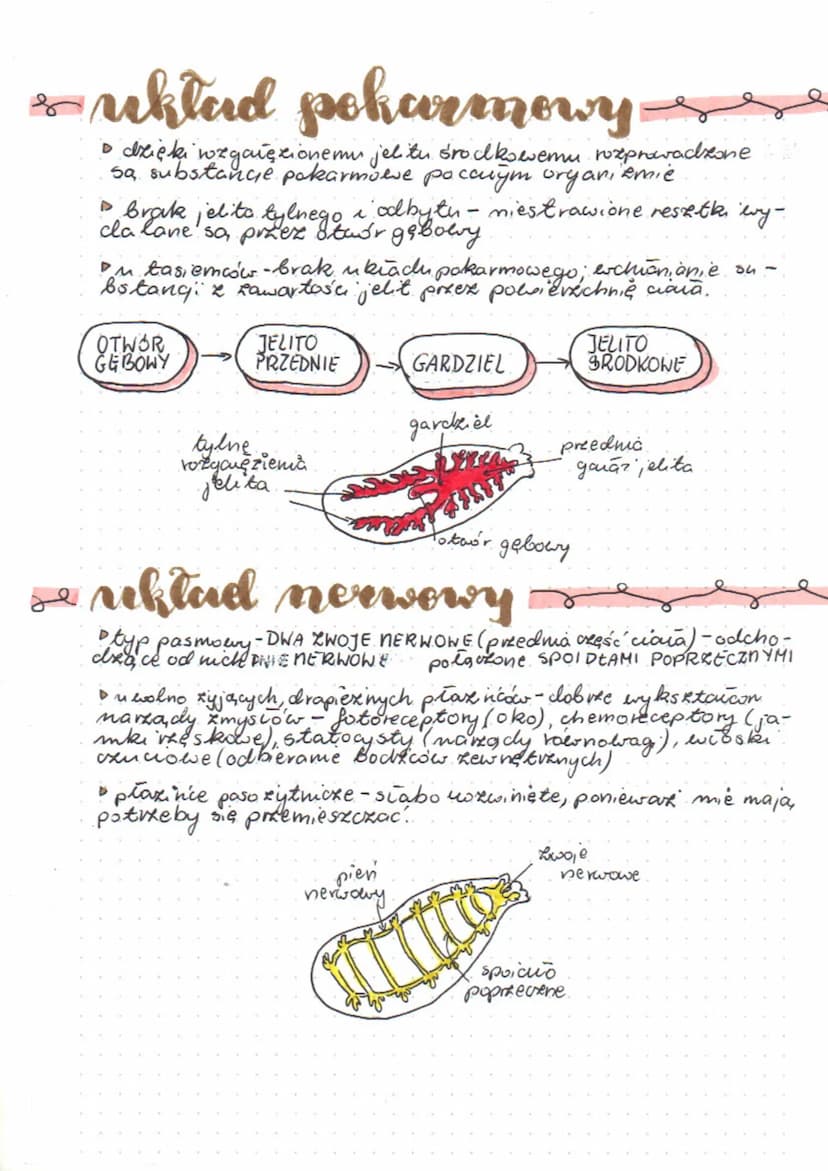 układ pokarmowy
▷ dzięki rozgałęzionemu jelitu środkowemu rozprowadzone
są substancje pokarmowe po całym organizmie
▷ brak jelita tylnego i odbytu - niestrawione resztki wy-
dalane są przez otwór gębowy
▷ u tasiemców - brak układu pokarmowego; wchłanianie su-
bstancji z zawartości jelit przez powierzchnię ciała.
OTWÓR GĘBOWY → JELITO PRZEDNIE → GARDZIEL → JELITO ŚRODKOWE
gardziel
tylne
rozgałęzienia
jelita
przednia
gałąź jelita
otwór gębowy
układ nerwowy
▷ typ pasmowy - DWA ZWOJE NERWOWE (przednia część ciała) - odcho-
dzące od nich PNIE NERWOWE połączone SPOIDŁAMI POPRZECZNYMI
▷ u wolno żyjących, drapieżnych płazińców - dobrze wykształcon
narządy zmysłów - fotoreceptory (oko), chemoreceptory (ja-
mki rzęskowe), statocysty (narządy równowagi), włoski
czuciowe (odbieranie bodźców zewnętrznych)
▷ płazińce pasożytnicze - słabo rozwinięte, ponieważ nie mają
potrzeby się przemieszczać.
zwoje
nerwowe
pień
nerwowy
spoidło
poprzeczne